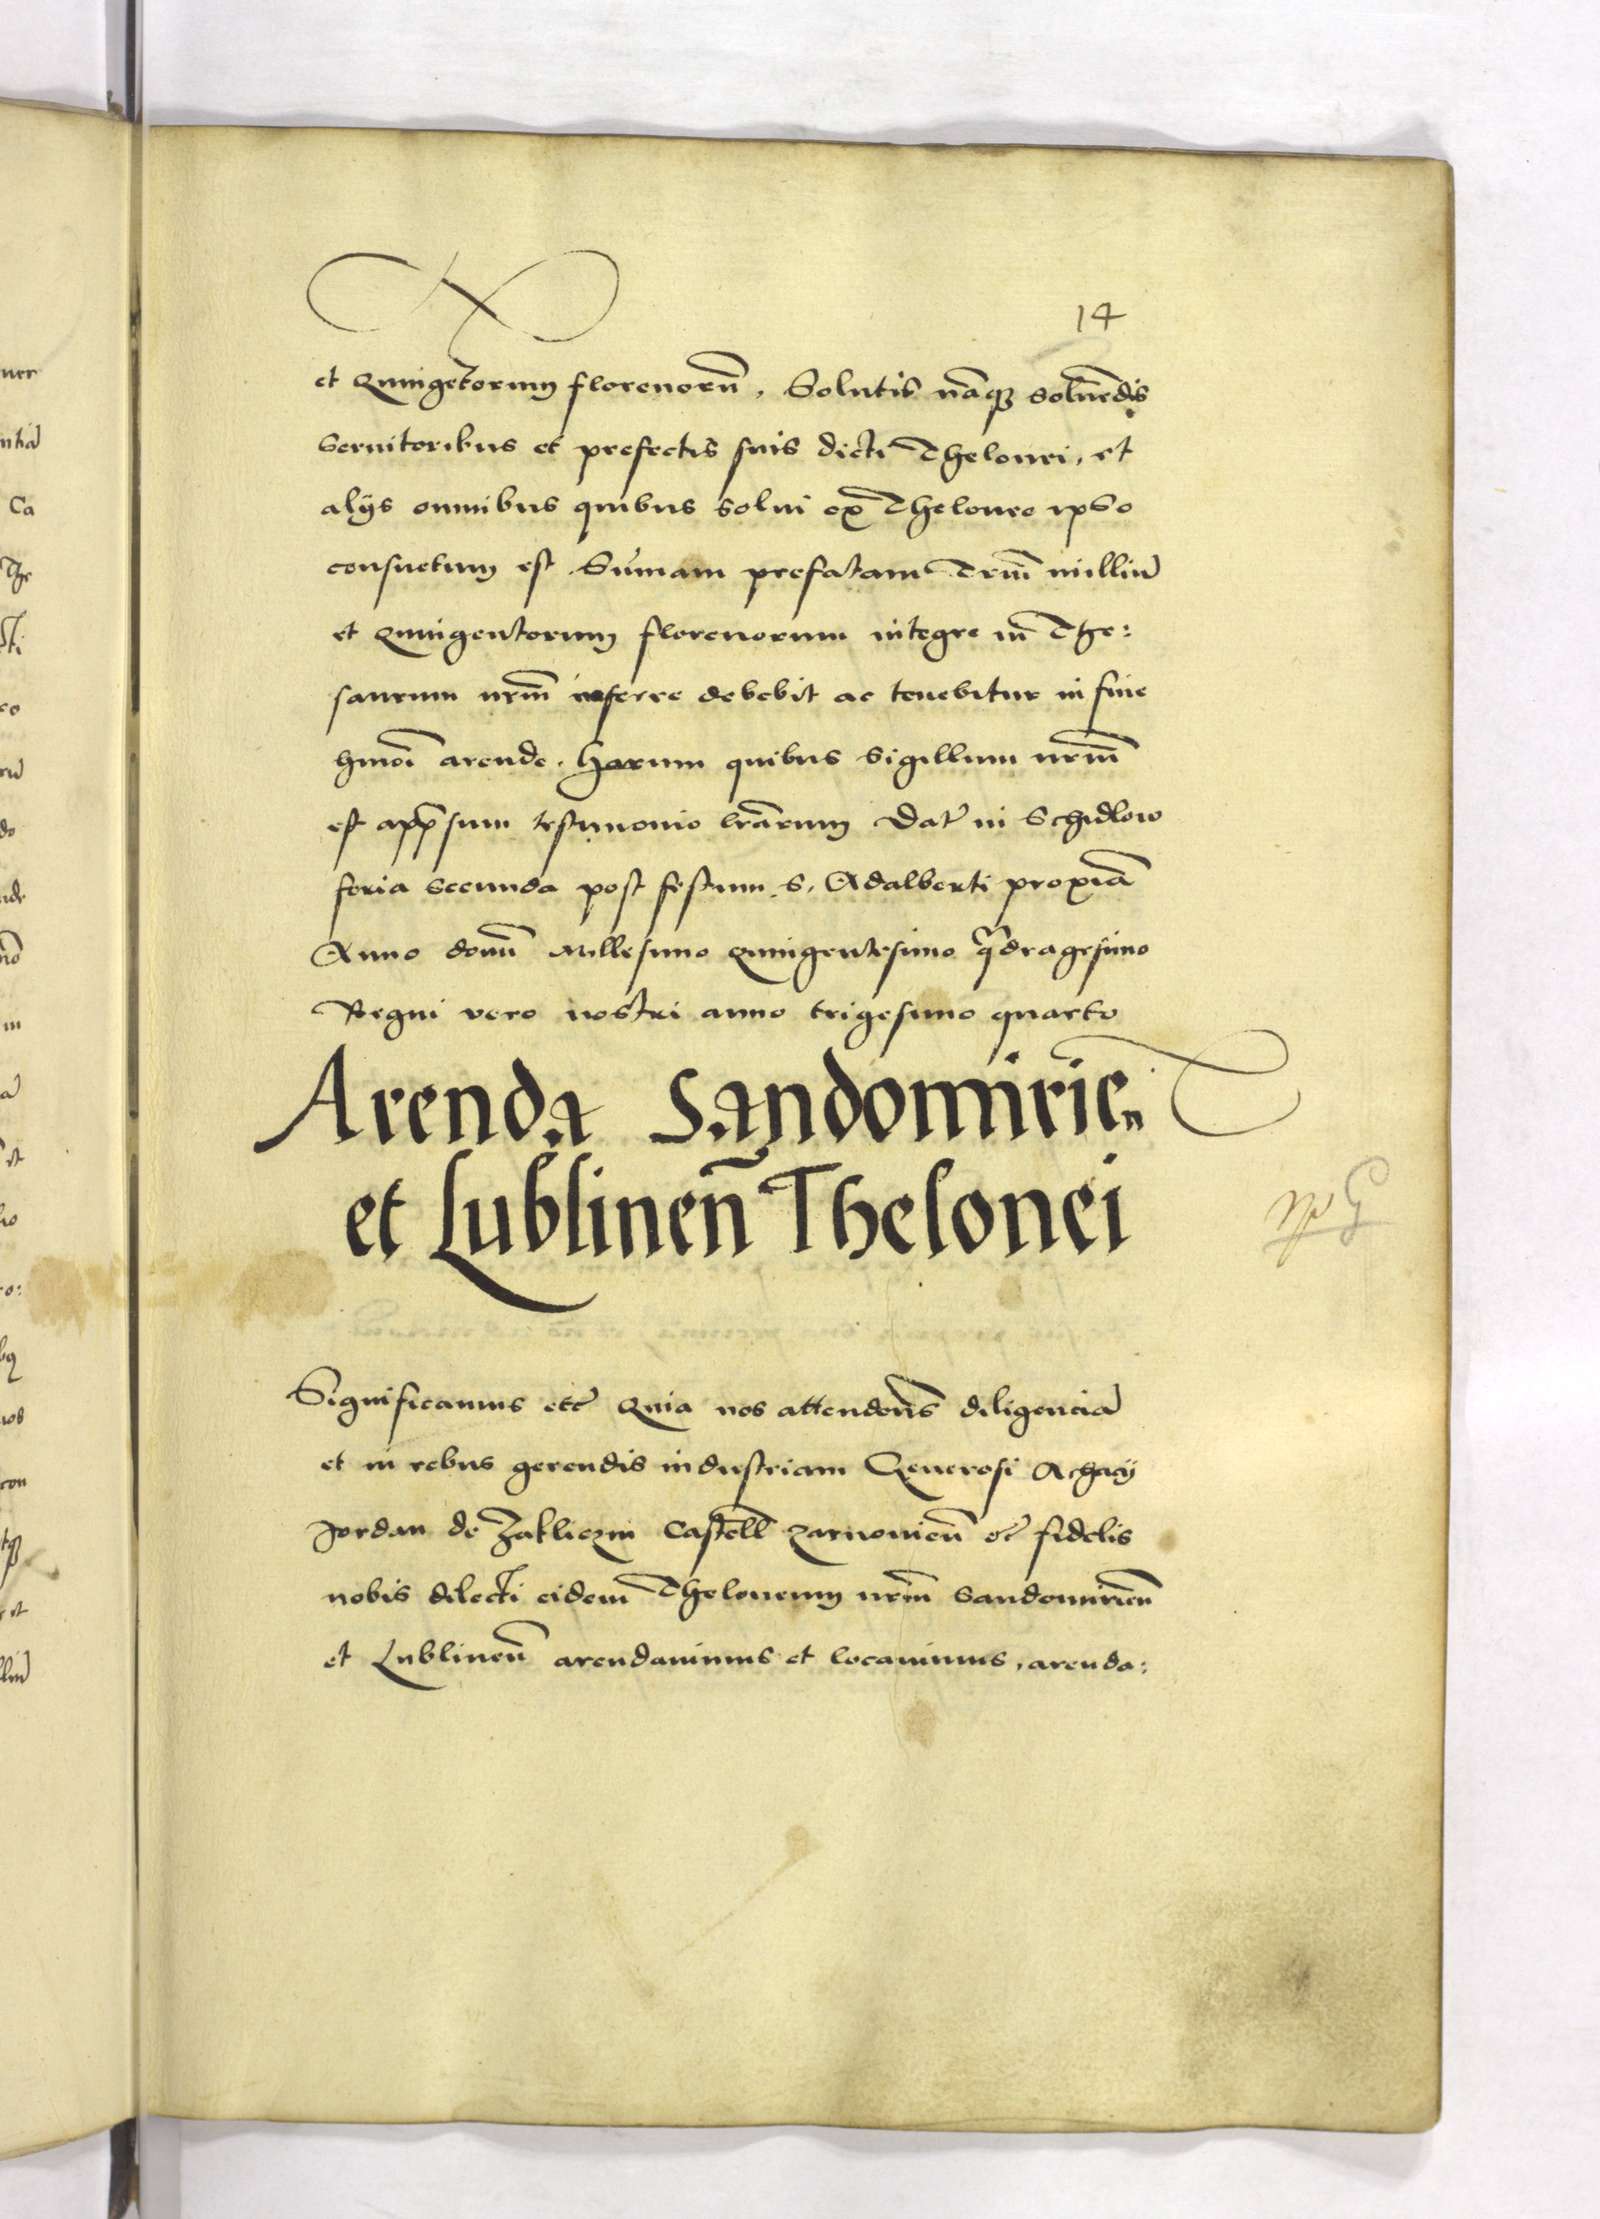 14
et Quingētorum florenorū, Solutis nāq3 solvēdis
Servitoribus et prefectis suis dicti Thelonei, et
alÿs omnibus quibus solvi ex Theloneo ipso
consuetum est Sūmam prefatam Triū milliū
et Quingentorum florenorum integre in The:
saurum nrm̄ inferre debebit ac tenebitur in fine
hmōi arende. Harum quibus Sigillum nrm̄
est app̄sum testimonio lrārum Dat̄ in Schidlow
feria secunda post festum S. Adalberti proximā
Anno domī Millesimo Quingentesimo q̄dragesimo
Regni vero nostri anno trigesimo quarto
Arenda Sandomirien
et Lublineñ Thelonei
Significamus etc̄ Quia nos attendeñs diligenciā
et in rebus gerendis industriam Generosi Achacÿ
Jordan de Zakliczin Castell̄ Zarnovieñ etc̄ fidelis
nobis dilecti eidem Theloneum nrm̄ Sandomirieñ
et Lublineñ arendavimus et locavimus, arenda: